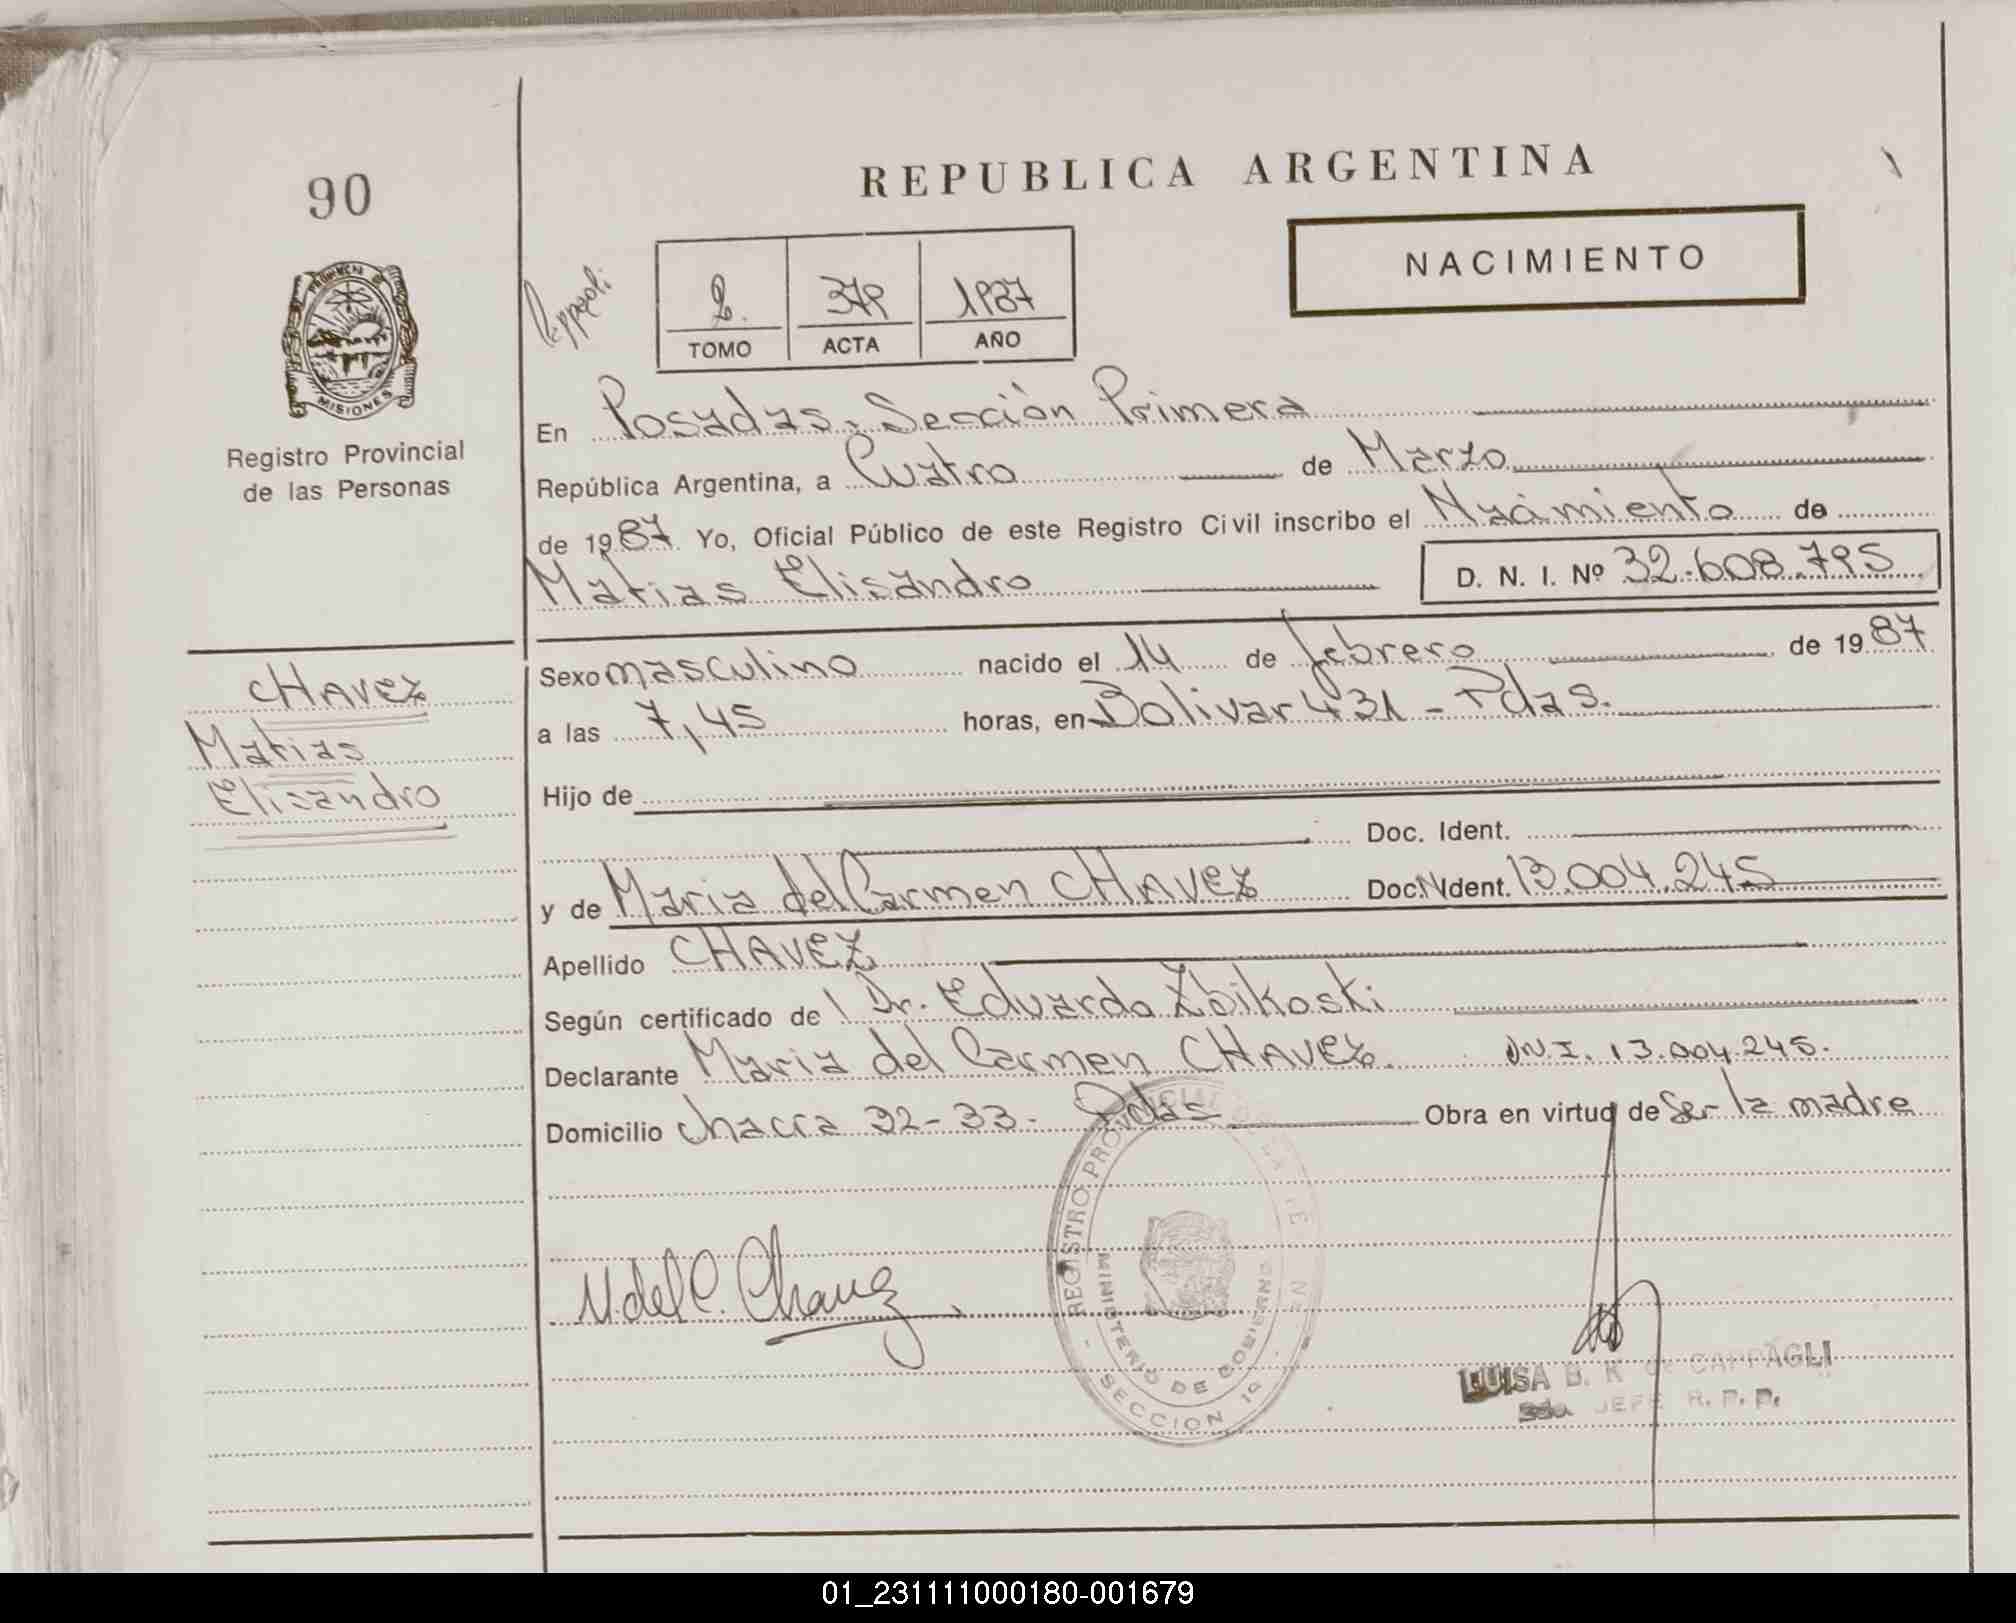 90
REPUBLICA ARGENTINA
NACIMIENTO
2. 379 1987
TOMO ACTA AÑO
PROVINCIA DE
MISIONES
Registro Provincial
de las Personas
En Posadas, Sección Primera
República Argentina, a Cuatro de Marzo
de 1987 Yo, Oficial Público de este Registro Civil inscribo el Nacimiento de
Matias Elisandro D. N. I. Nº 32.608.795
CHAVEZ
Matias
Elisandro
Sexo masculino nacido el 14 de febrero de 1987
a las 7,45 horas, en Bolivar 431 - Pdas.
Hijo de
Doc. Ident.
y de Maria del Carmen CHAVEZ Doc. Ident. 13.004.245
Apellido CHAVEZ
Según certificado de Dr. Eduardo Zbikoski
Declarante Maria del Carmen CHAVEZ. D.N.I. 13.004.245.
Domicilio Chacra 32-33- Pdas Obra en virtud de Ser la madre
M. del C. Chavez
REGISTRO PROVINCIAL DE LA
MINISTERIO DE GOBIERNO
- SECCION 1a -
LUISA B. K de CAPPAGLI
2da JEFE R. P. P.
01_231111000180-001679